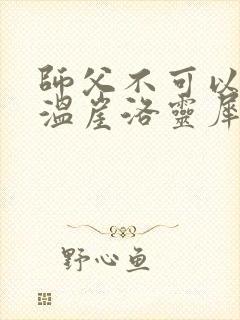 師父不可以
溫崖洛靈犀
野心鱼